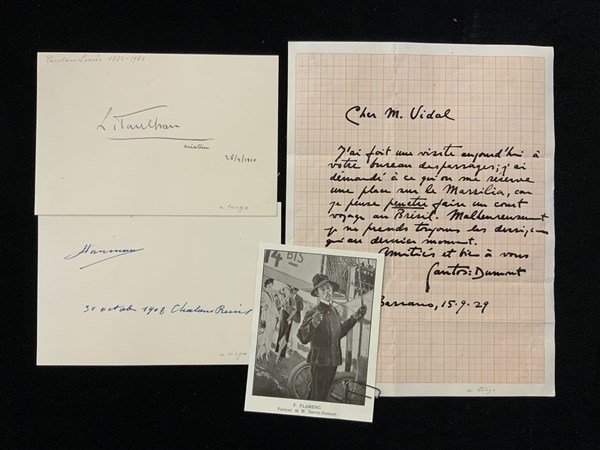 Paulan Louis 1883-1963
L. Paulhan
aviateur
28/4/1910
a tergo
31 octobre 1908 Chalons Reims
a tergo
14 BIS
F. FLAMENG
Portrait de M. Santos-Dumont
Cher M. Vidal
J'ai fait une visite aujourd'hui à
votre bureau des passages; j'ai
démandé à ce qu'on me réserve
une place sur le Massilia, car
je pense peutetre faire un court
voyage au Brésil. Malheureusement
je ne prends toujours les
qui au dernier moment.
Amitiés et bien à vous
Santos=Dumont
15.9.29
a tergo